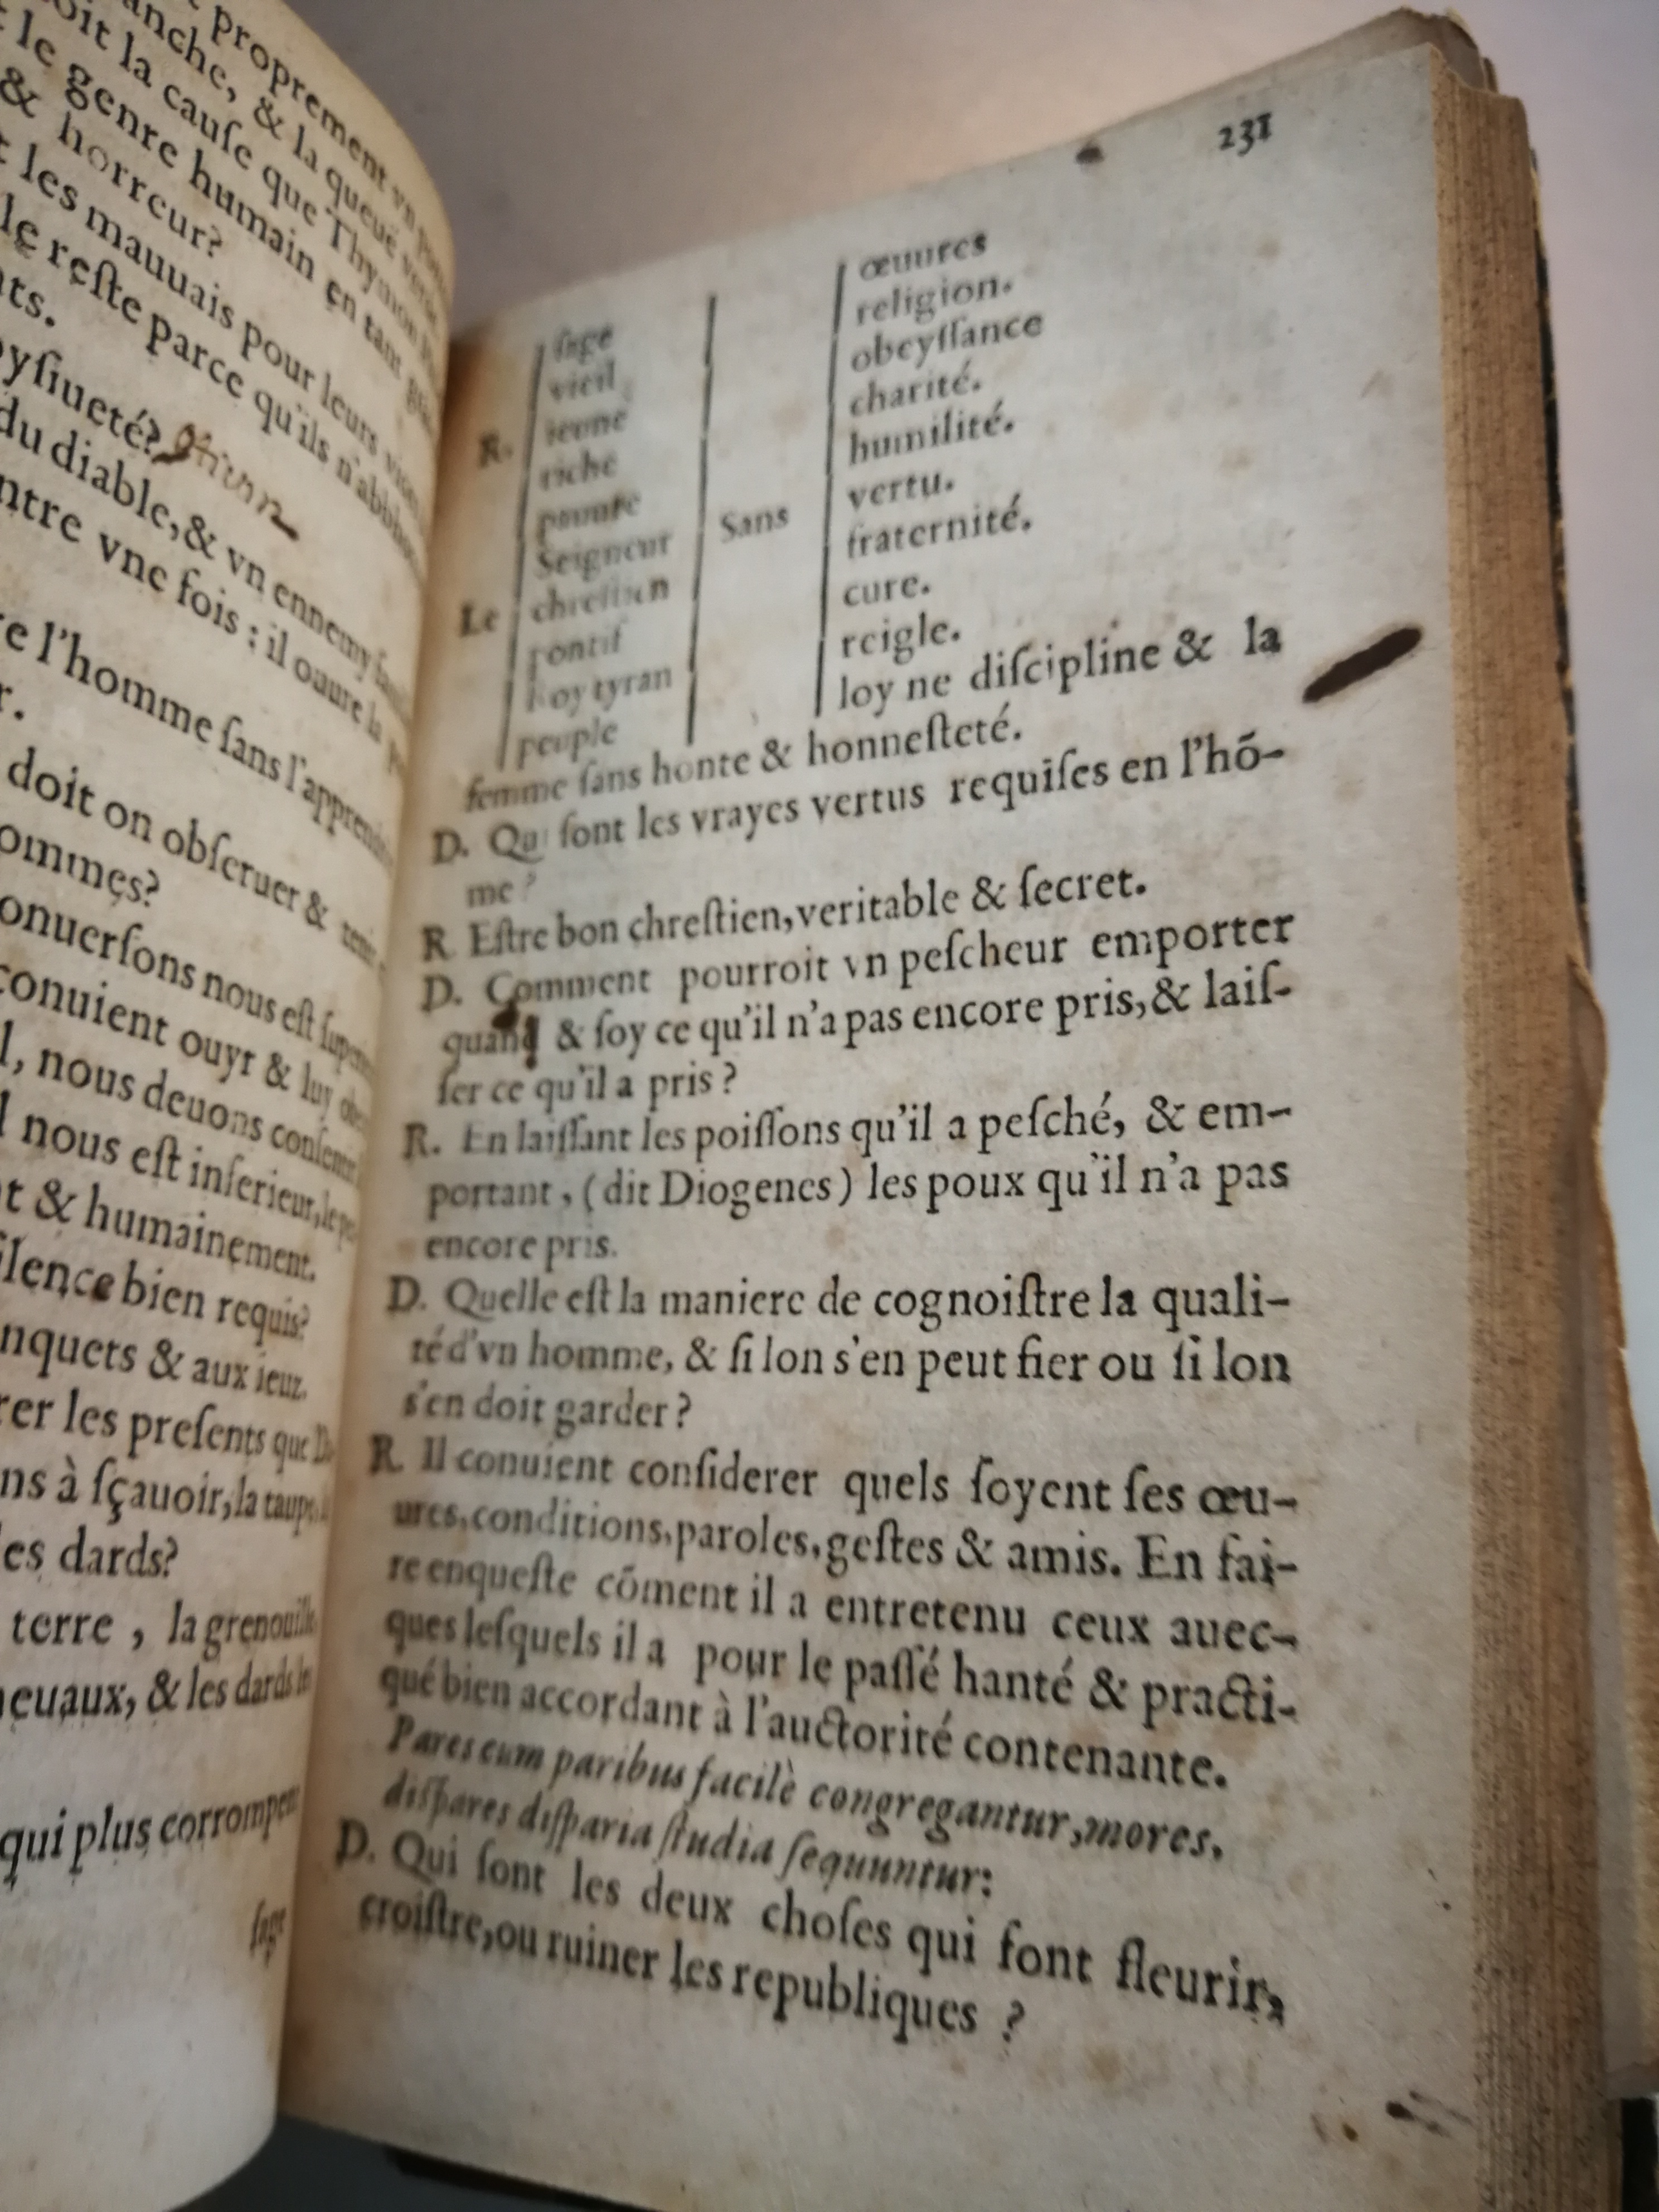 proprement vn
anche, & la queuë
oit la cauſe que Thymon
le genre humain en tant
& horreur?
les mauuais pour leurs
le reſte parce qu'ils n'abhor
ts.
yſiueté?
du diable, & vn ennemy
ntre vne fois : il ouure la
e l'homme ſans l'apprendre
r.
doit on obſeruer &
ommes?
onuerſons nous eſt ſuper
conuient ouyr & luy
l, nous deuons conſentir
l nous eſt inferieur,
t & humainement.
ilence bien requis?
nquets & aux ieuz.
rer les preſents que
ns à ſçauoir, la taupe,
es dards?
terre , la grenouille
euaux, & les dards
qui plus corrompent
ſage
231
R.
Le
ſage
vieil
ieune
riche
pauure
Seigneur
chreſtien
pontif
Roy tyran
peuple
Sans
œuures
religion.
obeyſſance
charité.
humilité.
vertu.
fraternité.
cure.
reigle.
loy ne diſcipline & la
femme ſans honte & honneſteté.
D. Qui ſont les vrayes vertus requiſes en l'hō-
me?
R Eſtre bon chreſtien, veritable & ſecret.
D. Comment pourroit vn peſcheur emporter
quand & ſoy ce qu'il n'a pas encore pris, & laiſ-
ſer ce qu'il a pris ?
R. En laiſſant les poiſſons qu'il a peſché, & em-
portant , ( dit Diogenes ) les poux qu'il n'a pas
encore pris.
D. Quelle eſt la maniere de cognoiſtre la quali-
té d'vn homme, & ſi lon s'en peut fier ou ſi lon
s'en doit garder ?
R. Il conuient conſiderer quels ſoyent ſes œu-
ures, conditions, paroles, geſtes & amis. En fai-
re enqueſte cōment il a entretenu ceux auec-
ques leſquels il a pour le paſſé hanté & practi-
qué bien accordant à l'auctorité contenante.
Pares eum paribus facilè congregantur, mores,
diſpares diſparia ſtudia ſequuntur:
D. Qui ſont les deux choſes qui font fleurir,
croiſtre, ou ruiner les republiques ?